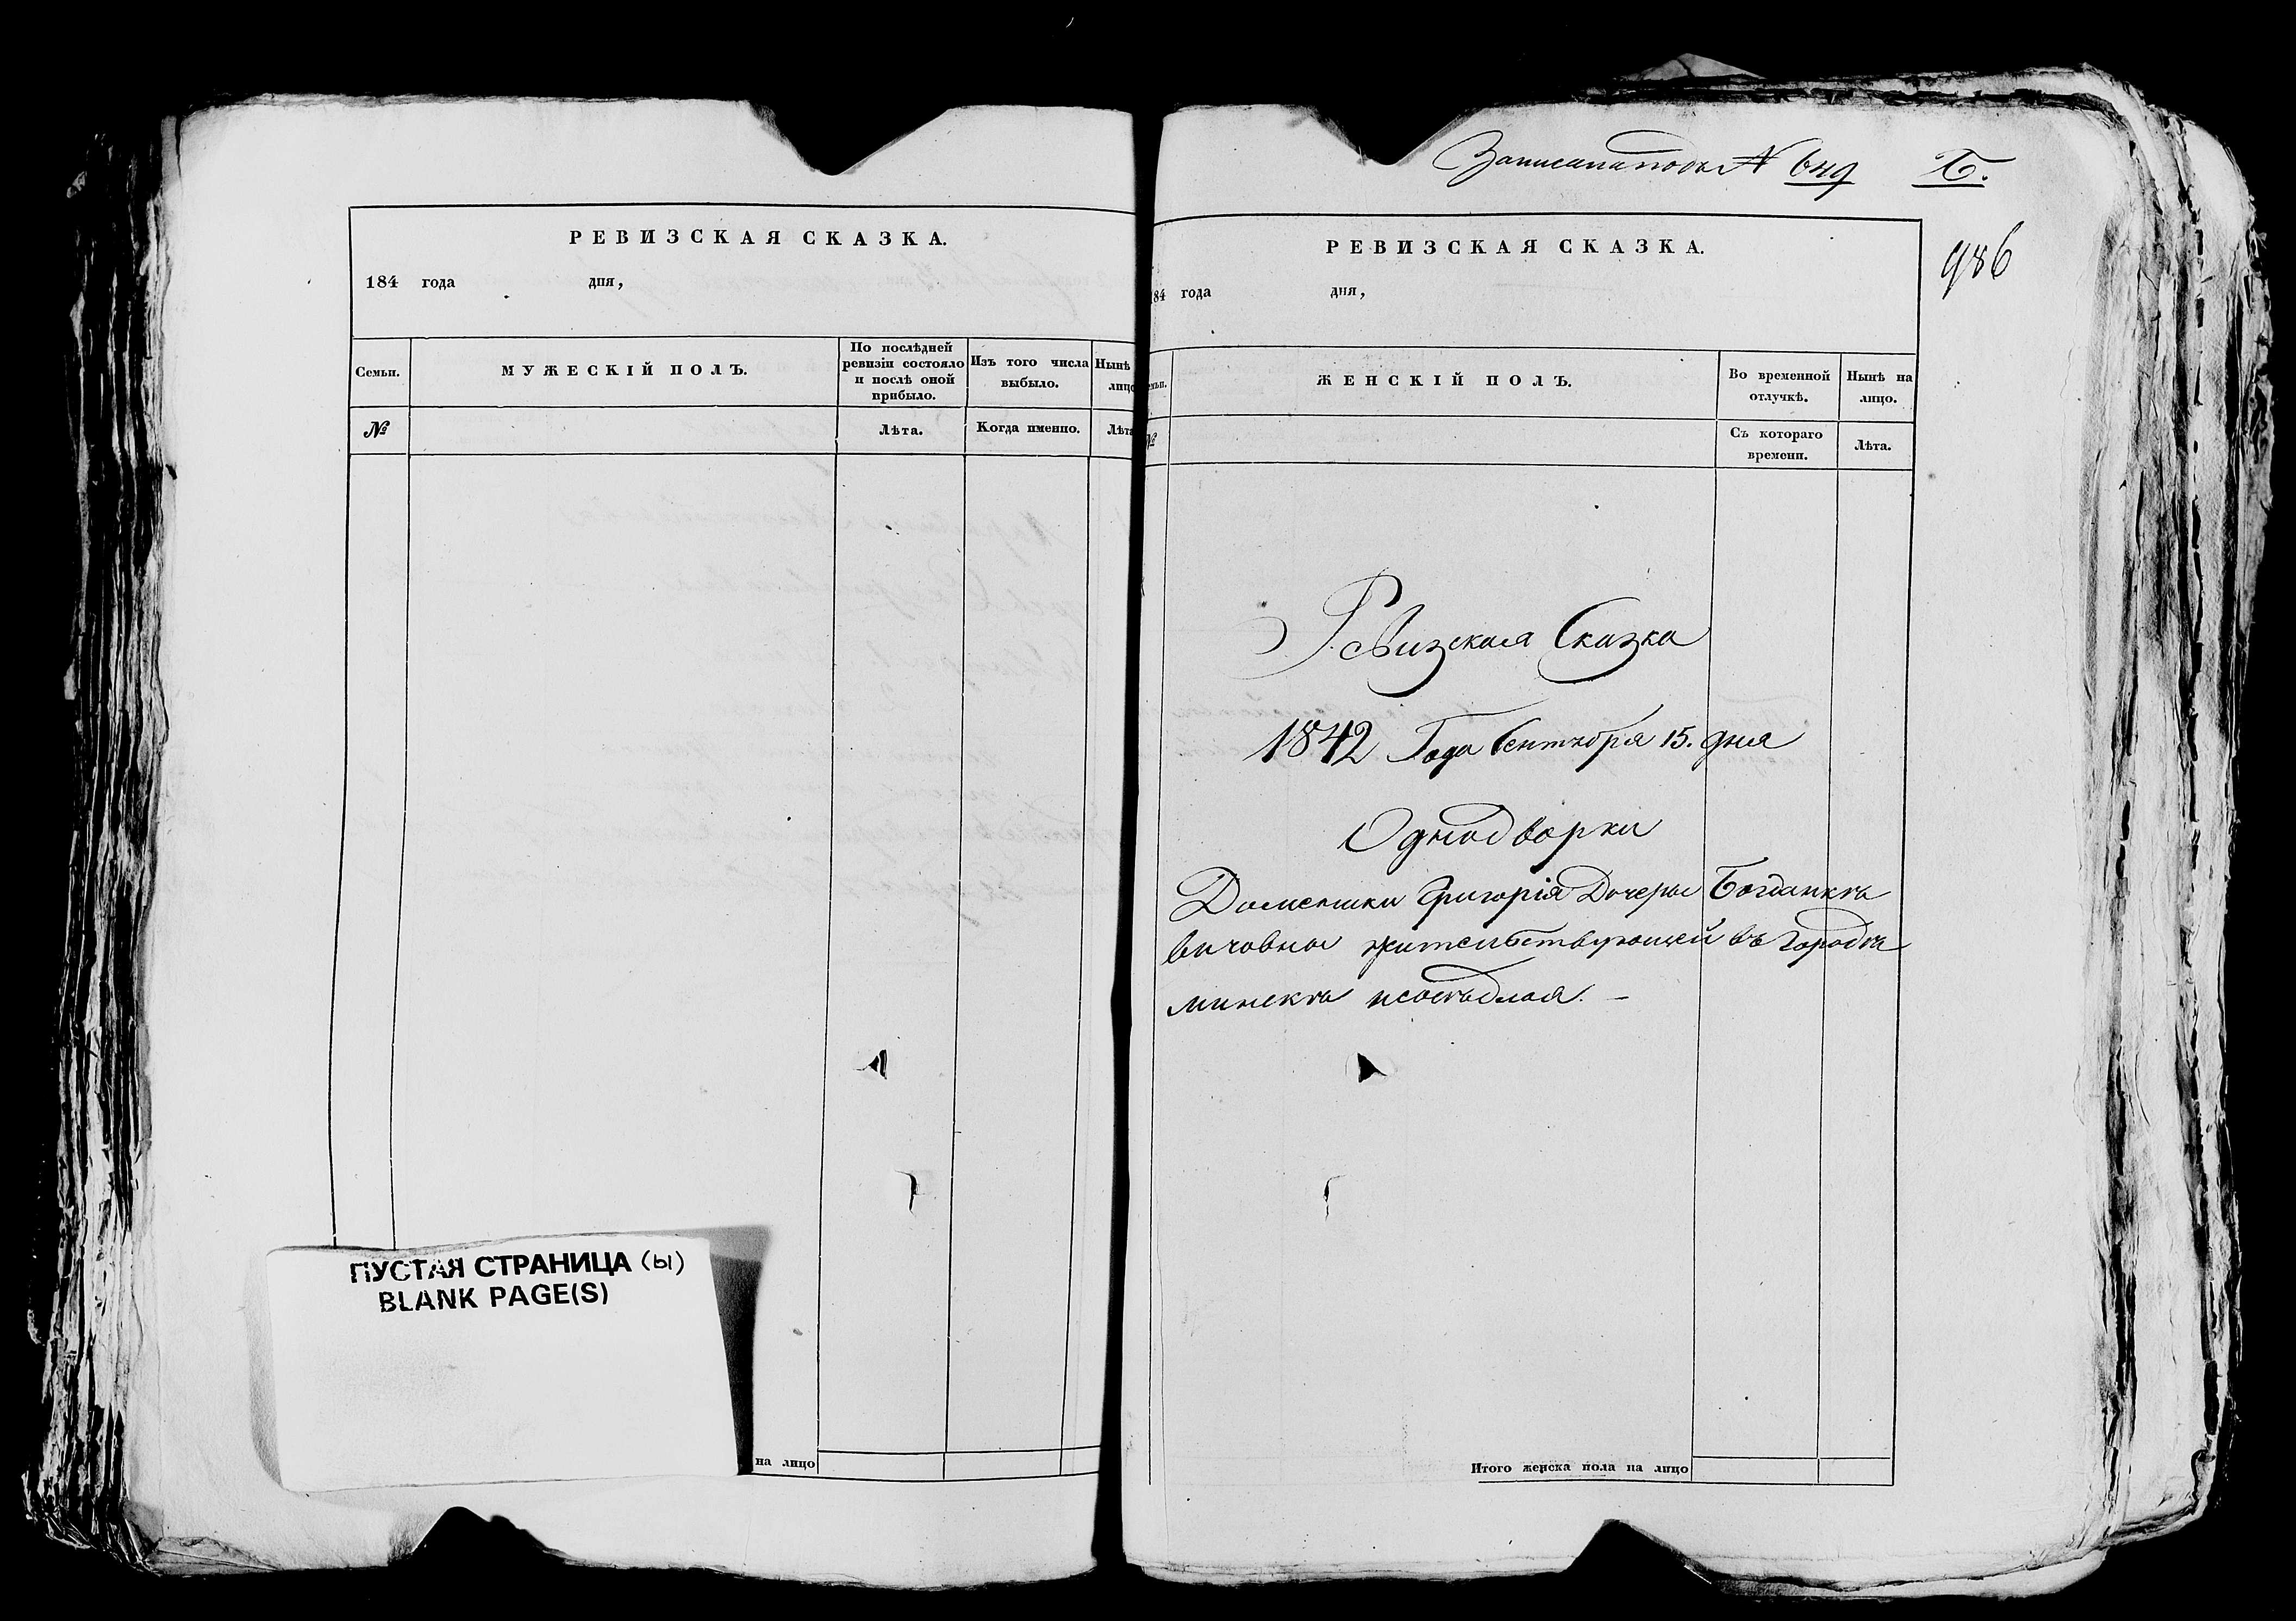 РЕВИЗСКАЯ СКАЗКА.
184 года дня,
Семьи.
МУЖЕСКІЙ ПОЛЪ.
По послѣдней ревизіи состояло и послѣ оной прибыло.
Изъ того числа выбыло.
Нынѣ лицо
№
Лѣта.
Когда именно.
Лѣта
ПУСТАЯ СТРАНИЦА (ы)
BLANK PAGE(S)
на лицо
Записана подъ №
Б.
986
РЕВИЗСКАЯ СКАЗКА.
184 года дня,
ЖЕНСКІЙ ПОЛЪ.
Во временной отлучкѣ.
Нынѣ на лицо.
№
Съ котораго времени.
Лѣта.
Ревизская Сказка
1842 Года Сентября 15. дня
Однодворки
Григорія Дочеры Богданке
вичовны жительствующей въ Городѣ
Минскѣ неосѣдлая. –
Итого женска пола на лицо